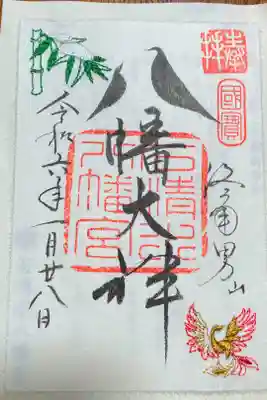 奉拝
國寶
江南男山
八幡大神
石清水
八幡宮
令和六年一月廿八日